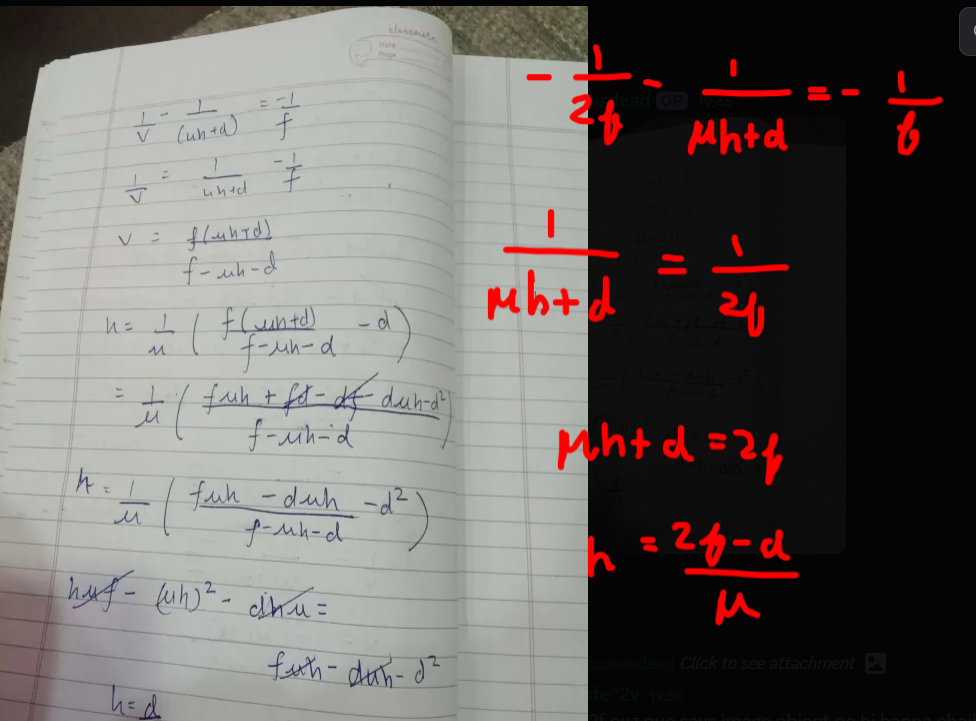 classmate
Date
Page
1/v - 1/(μh+d) = -1/f
1/v = 1/μh+d - 1/f
v = f(μh+d)/f-μh-d
h = 1/μ ( f(μh+d)/f-μh-d - d )
= 1/μ ( fμh + fd - df - dμh-d²/f-μh-d )
h = 1/μ ( fμh - dμh - d²/f-μh-d )
hμf - (μh)² - dhμ =
fμh - dμh - d²
h = d
- 1/2f - 1/μh+d = - 1/f
1/μh+d = 1/2f
μh+d = 2f
h = 2f-d/μ
isdead OP 19:46
scoreisdead Click to see attachment
19:50